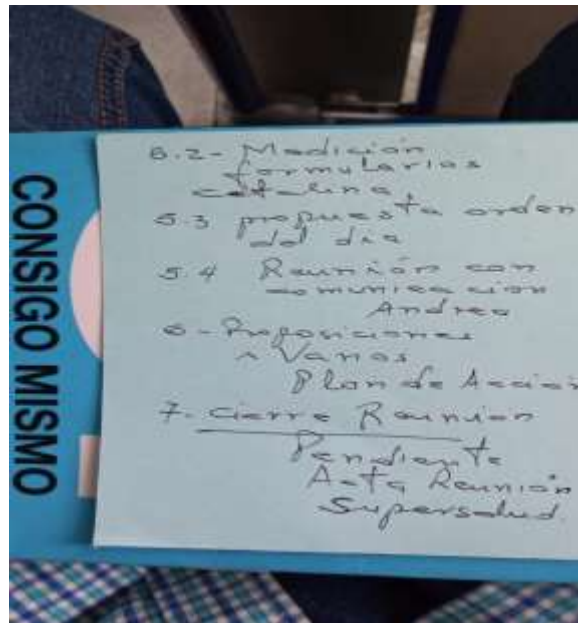 CONSIGO MISMO
5.2- Medición
formularios
catalina
5.3 propuesta orden
del dia
5.4 Reunión con
comunicacion
Andrea
6- Proposiciones
y Varios
Plan de Accion
7- Cierre Reunion
Pendiente
Acta Reunión
Supersalud.